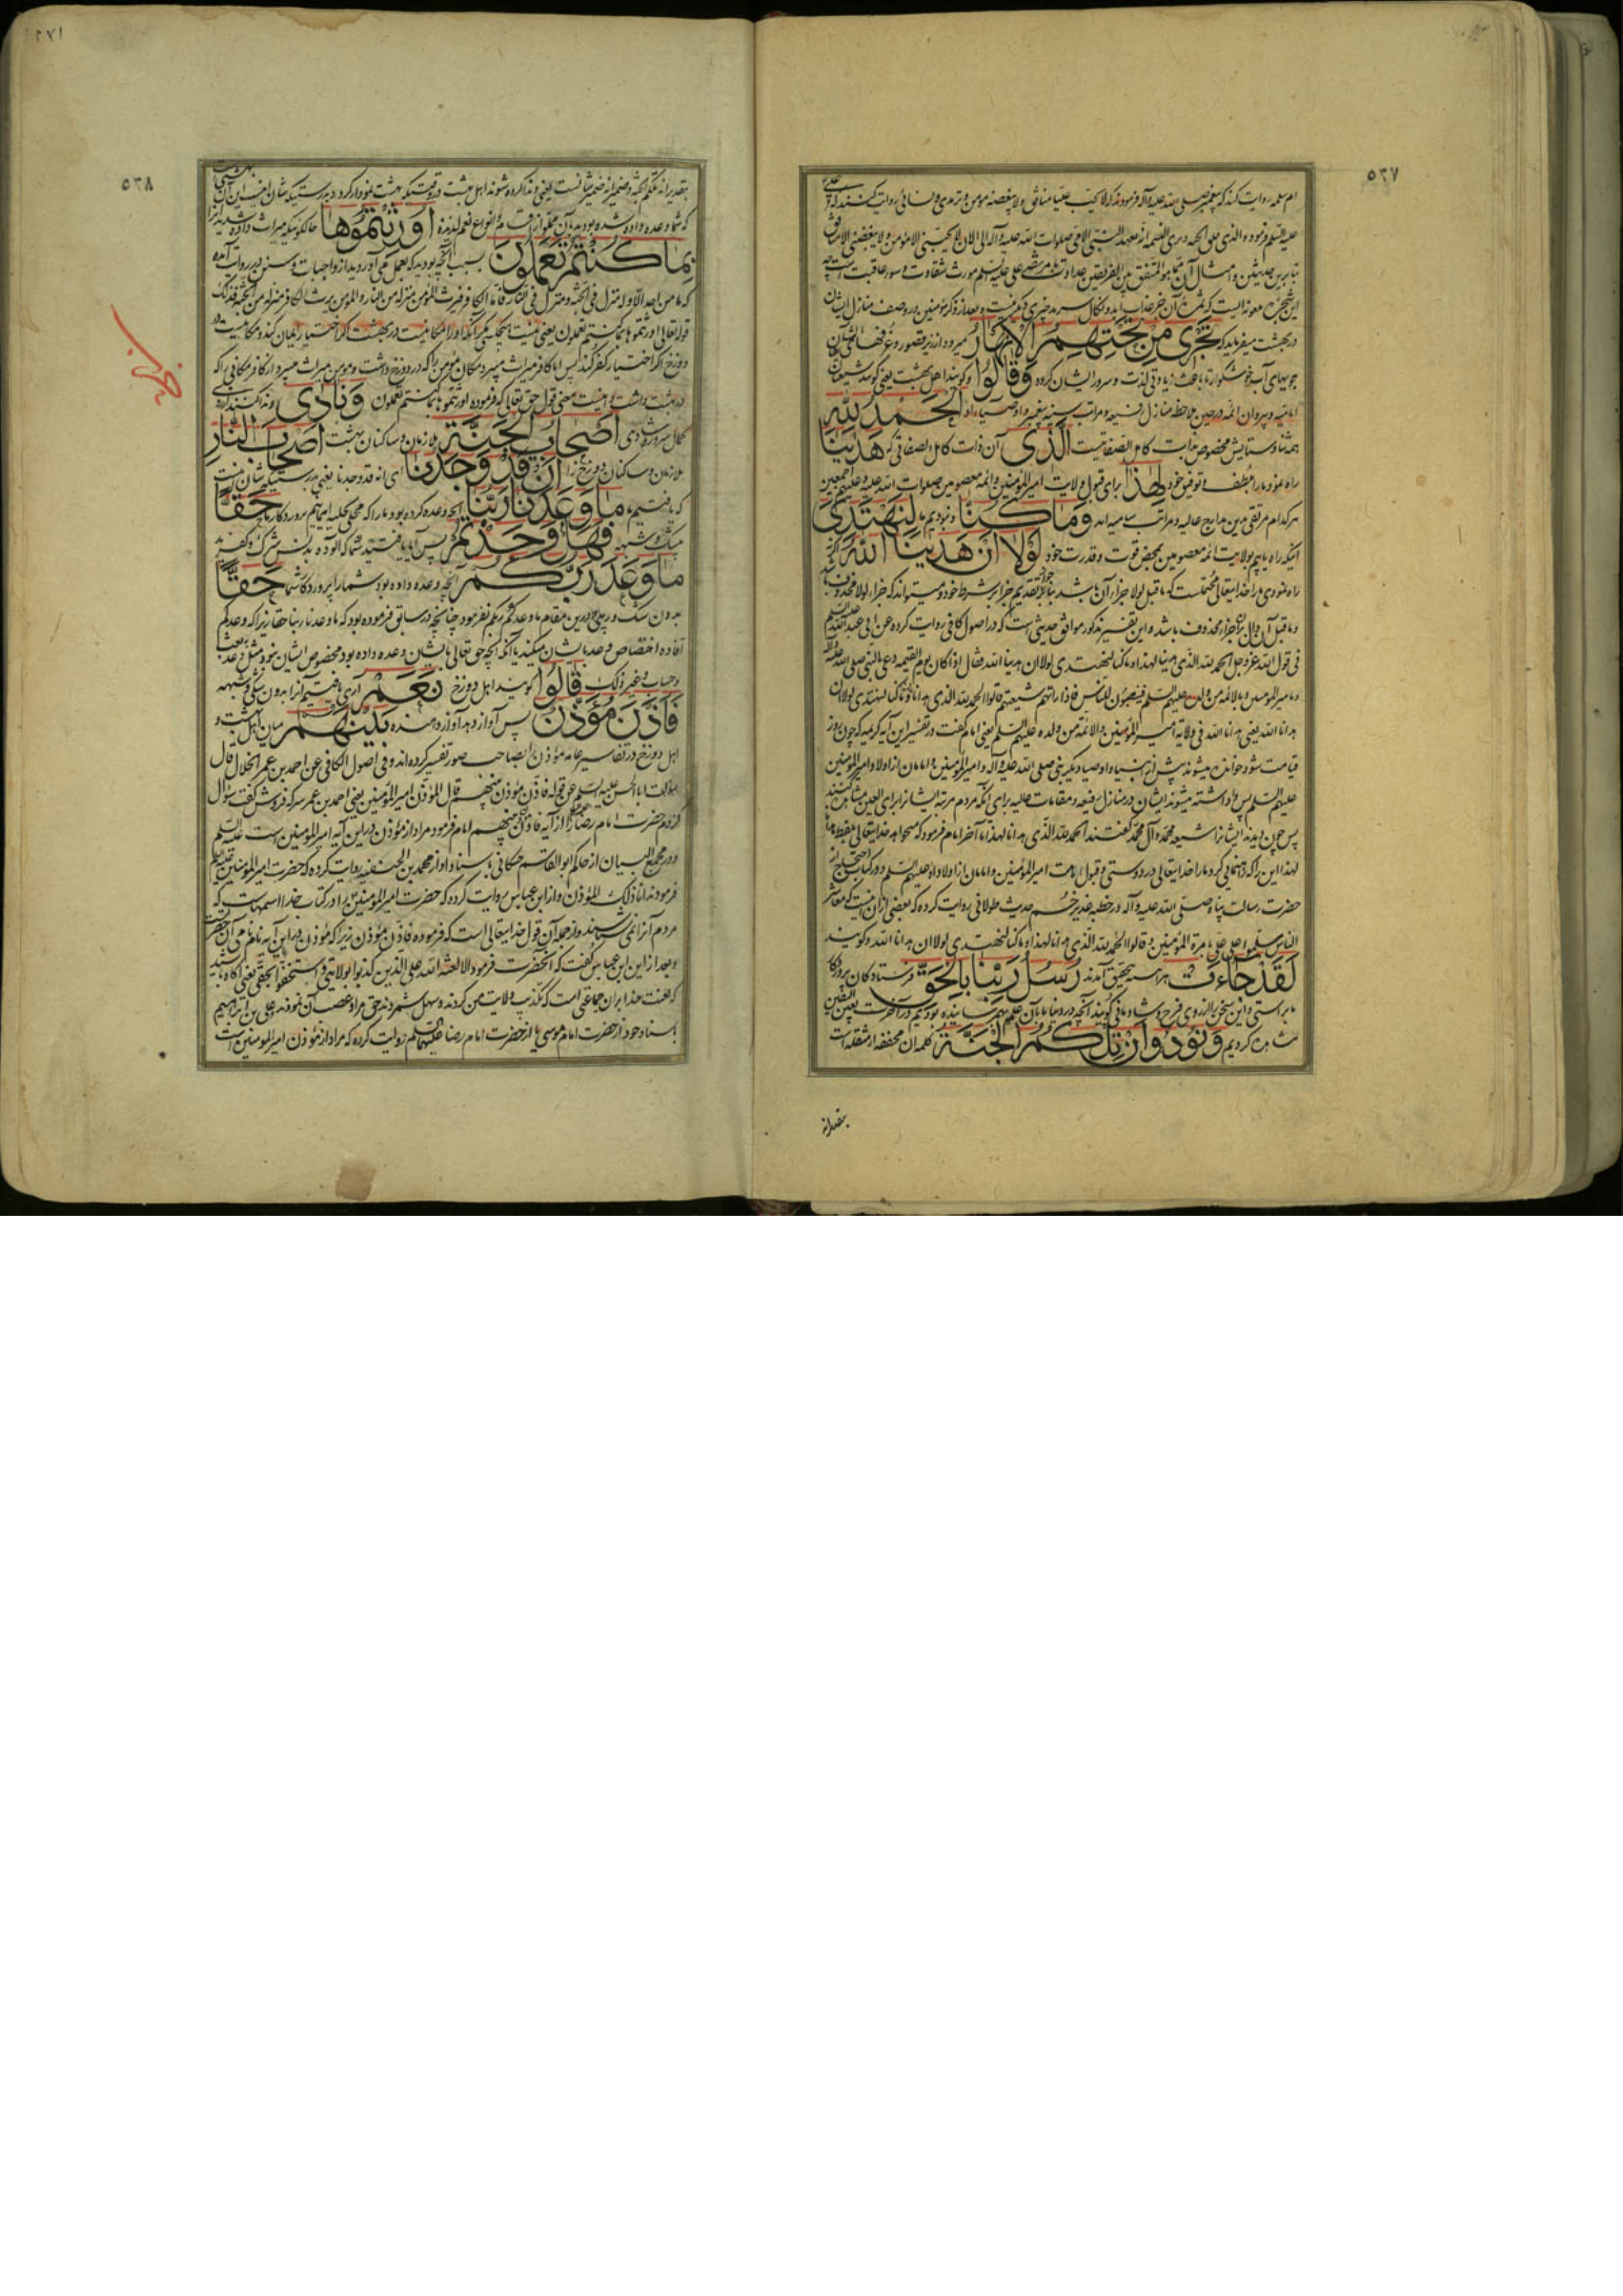 ٥٣٧
ام سلمه روایت کنند که پیغمبر صلی الله علیه وآله فرمودند که لا یحب علیا منافق ولا یبغضه مومن و ترمذی و نسائی روایت کنند که
علیه السلم فرمود والذی فلق الحبه وبرئ النسمه انه لعهد النبی الامی صلوات الله علیه وآله الی ان لا یحبنی الا مؤمن ولا یبغضنی الا منافق
در بهشت میفرماید که تَجْرِي مِنْ تَحْتِهِمُ الْأَنْهارُ میرود از زیر قصور و غرفهای ایشان
جویهای آب خوشگوار تا باعث زیادتی لذت و سرور ایشان گردد وَقالُوا و گویند اهل بهشت یعنی گویند شیعیان
امامیه و پیروان ائمه در حین ملاحظه منازل رفیعه و مراتب الْحَمْدُ لِلَّهِ
همه ثنا و ستایش مخصوص بذات کامل الصفاتیست الَّذِي آن ذات کامل الصفاتی که هَدانا
راه نمود ما را بلطف و توفیق خود لِهذا برای قبول ولایت امیرالمؤمنین وائمه معصومین صلوات الله علیه وعلیهم اجمعین
هر کدام مرتقی باین مدارج عالیه و مراتب سامیه اند وَما كُنَّا و نبودیم ما لِنَهْتَدِيَ
آنکه راه یابیم بولایت ائمه معصومین بمحض قوت و قدرت خود لَوْلا أَنْ هَدانَا اللَّهُ اگر نه
راه نمودی ما را خدایتعالی محتملست که ما قبل لولا جزاء آن باشد بنابر جواز تقدیم جزا بر شرط خود و میتواند که جزاء لولا محذوف باشد
و ما قبل آن دال بران جزاء محذوف باشد و این تفسیر مذکور موافق حدیثی است که در اصول کافی روایت کرده عن ابی عبدالله علیه السلم
فی قول الله عز وجل الحمد لله الذی هدینا لهذا وما کنا لنهتدی لولا ان هدینا الله فقال اذا کان یوم القیمه دعی بالنبی صلی الله علیه وآله
وبامیر المومنین وبالائمه من ولده علیهم السلم فینصبون للناس فاذا راتهم شیعتهم قالوا الحمد لله الذی هدانا لهذا وما کنا لنهتدی لولا ان
هدانا الله یعنی هدانا الله فی ولایة امیر المؤمنین والائمة من ولده علیهم السلم یعنی امام گفت در تفسیر این آیه کریمه که چون روز
قیامت شود خوانده میشوند پیش از انبیا و اوصیاء دیگر نبی صلی الله علیه وآله وامیرالمؤمنین و امامان از اولاد امیرالمؤمنین
علیهم السلم پس وا داشته میشوند ایشان در منازل رفیعه و مقامات عالیه برای آنکه مردم مرتبه ایشانرا برای العین مشاهده کنند
پس چون دیدند ایشانرا شیعه محمد وآل محمد گفتند الحمد لله الذی هدانا لهذا تا آخر امام فرمود که میخواهد خدایتعالی بلفظ ما
لهذا این را که رهنمائی کرد ما را خدایتعالی در دوستی و قبول امامت امیرالمؤمنین و امامان از اولاد او علیهم السلم و در کتاب احتجاج از
حضرت رسالت پناه صلی الله علیه وآله در خطبه غدیر خم حدیث طولانی روایت کرده که بعضی از ان اینست که معاشر
الناس سلموا علی علی بامرة المؤمنین و قالوا الحمد لله الذی هدانا لهذا وما کنا لنهتدی لولا ان هدانا الله و گویند
لَقَدْ جاءَتْ هر آینه بتحقیق آمدند رُسُلُ رَبِّنا بِالْحَقِّ فرستادگان پروردگار
ما براستی و این سخن را از روی فرح و شادمانی گویند آنچه در دنیا بما بآن علم رسانیده بودیم در آخرت بعین الیقین
مشاهده کردیم وَنُودُوا أَنْ تِلْكُمُ الْجَنَّةُ کلمه ان مخففه از مثقله است
بتقدیرانه
٢٧١
٥٣٨
بتقدیر انه تلکم الجنه وضمیر انه ضمیر شانست یعنی و ندا کرده شوند اهل بهشت در وقتیکه بهشت نمودار گردد بدرستیکه شان اینست این آن بهشتی است
که شما وعده داده شده بودید بآن مملو از اقسام و انواع نعم لذیذه أُورِثْتُمُوها
بِما كُنْتُمْ تَعْمَلُونَ بسبب آنچه بودید که بعمل می آوردید از واجبات و سنن و در روایت آمده
که ما من احد الا وله منزل فی الجنه ومنزل فی النار فاما الکافر فیرث المؤمن منزله من النار والمؤمن یرث الکافر منزله من الجنة فذلک
قوله تعالی اورثتموها بما کنتم تعملون یعنی نیست هیچکس مگر آنکه او را مکانیست در بهشت اگر اختیار ایمان کند و مکانیست در
دوزخ اگر اختیار کفر کند پس اما کافر میراث میبرد مکان مؤمن را که در دوزخ داشت و مومن میراث میبرد از کافر مکانی را که
در بهشت داشت و اینست معنی قول حق تعالی که فرموده اورثتموها بما کنتم تعملون وَنادى و ندا کنند از روی
کمال سرور و شادی أَصْحابُ الْجَنَّةِ ملازمان و ساکنان بهشت أَصْحابَ النَّارِ
ملازمان و ساکنان دوزخ را أَنْ قَدْ وَجَدْنا ای انه قد وجدنا یعنی بدرستیکه شان اینست
که یافتیم ما ما وَعَدَنا رَبُّنا آنچه وعده کرده بود ما را که محلی بحلیه ایمانیم پروردگار ما حَقًّا
بیشک و شبهه فَهَلْ وَجَدْتُمْ پس آیا یافتید شما که آلوده بدنس شرک و کفرید
ما وَعَدَ رَبُّكُمْ آنچه وعده داده بود شما را پروردگار شما حَقًّا
بدون شک و ریب و درین مقام ما وعدکم ربکم نفرمود چنانچه در سابق فرموده بود که ما وعدنا ربنا حقا زیرا که وعدکم
افاده اختصاص وعد بایشان میکند با آنکه آنچه حق تعالی بایشان وعده داده بود مخصوص ایشان نبود مثل وعد بعث
وحساب وغیر ذلک قالُوا گویند اهل دوزخ نَعَمْ آری یافتیم آنرا بدون شکی و شبهه
فَأَذَّنَ مُؤَذِّنٌ پس آواز دهد آواز دهنده بَيْنَهُمْ میان اهل بهشت و
اهل دوزخ در تفاسیر عامه مؤذن را بصاحب صور تفسیر کرده اند و فی اصول الکافی عن احمد بن عمر الحلال قال
سألت اباالحسن علیه السلم عن قوله فاذن مؤذن بینهم قال المؤذن امیرالمؤمنین یعنی احمد بن عمر سرکه فروش گفت سؤال
کردم حضرت امام رضا را از آیه فاذن مؤذن بینهم امام فرمود مراد از مؤذن در این آیه امیرالمؤمنین است علیه السلم
و در مجمع البیان از حاکم ابو القاسم حسکانی باسناد او از محمد بن الحنفیه روایت کرده که حضرت امیرالمؤمنین علیه السلم
فرمودند انا ذلک المؤذن و از ابن عباس روایت کرده که حضرت امیرالمؤمنین را در کتاب خدا اسمهاست که
مردم آنرا نمی شناسند و از جمله آن قول خدایتعالی است که فرموده فاذن مؤذن زیرا که مؤذن در این آیه نام نامی آن حضرت است
و بعد از این ابن عباس گفت که آنحضرت فرمود الا لعنة الله علی الذین کذبوا بولایتی واستخفوا بحقی یعنی آگاه باشید
که لعنت خدا بران جماعتی است که تکذیب ولایت من کردند و سهل شمردند حق مرا و غصب آن نمودند و علی بن ابراهیم
باسناد خود از حضرت امام موسی یا از حضرت امام رضا علیهما السلم روایت کرده که مراد از مؤذن امیرالمومنین است